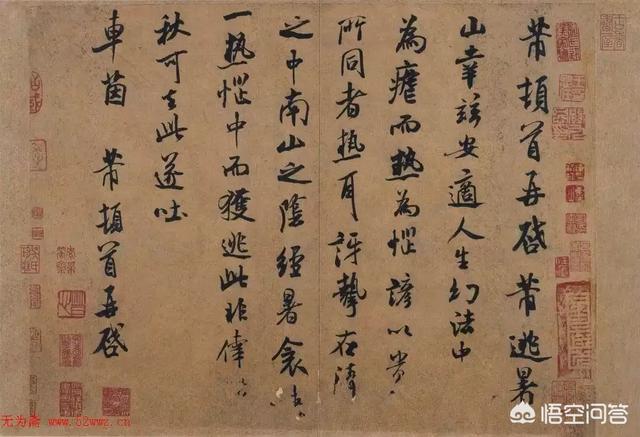 芾頓首再啓芾逃暑
山幸兹安適人生幻法中
為瘧而熱為惱諺以貴〻
所同者熱耳訝挚在清
之中南山之陰經暑衾〻
一熱惱中而獲逃此非幸〻
秋可去此遂吐
車茵 芾頓首再啓
无为斋 www.52wwz.cn
悟空问答